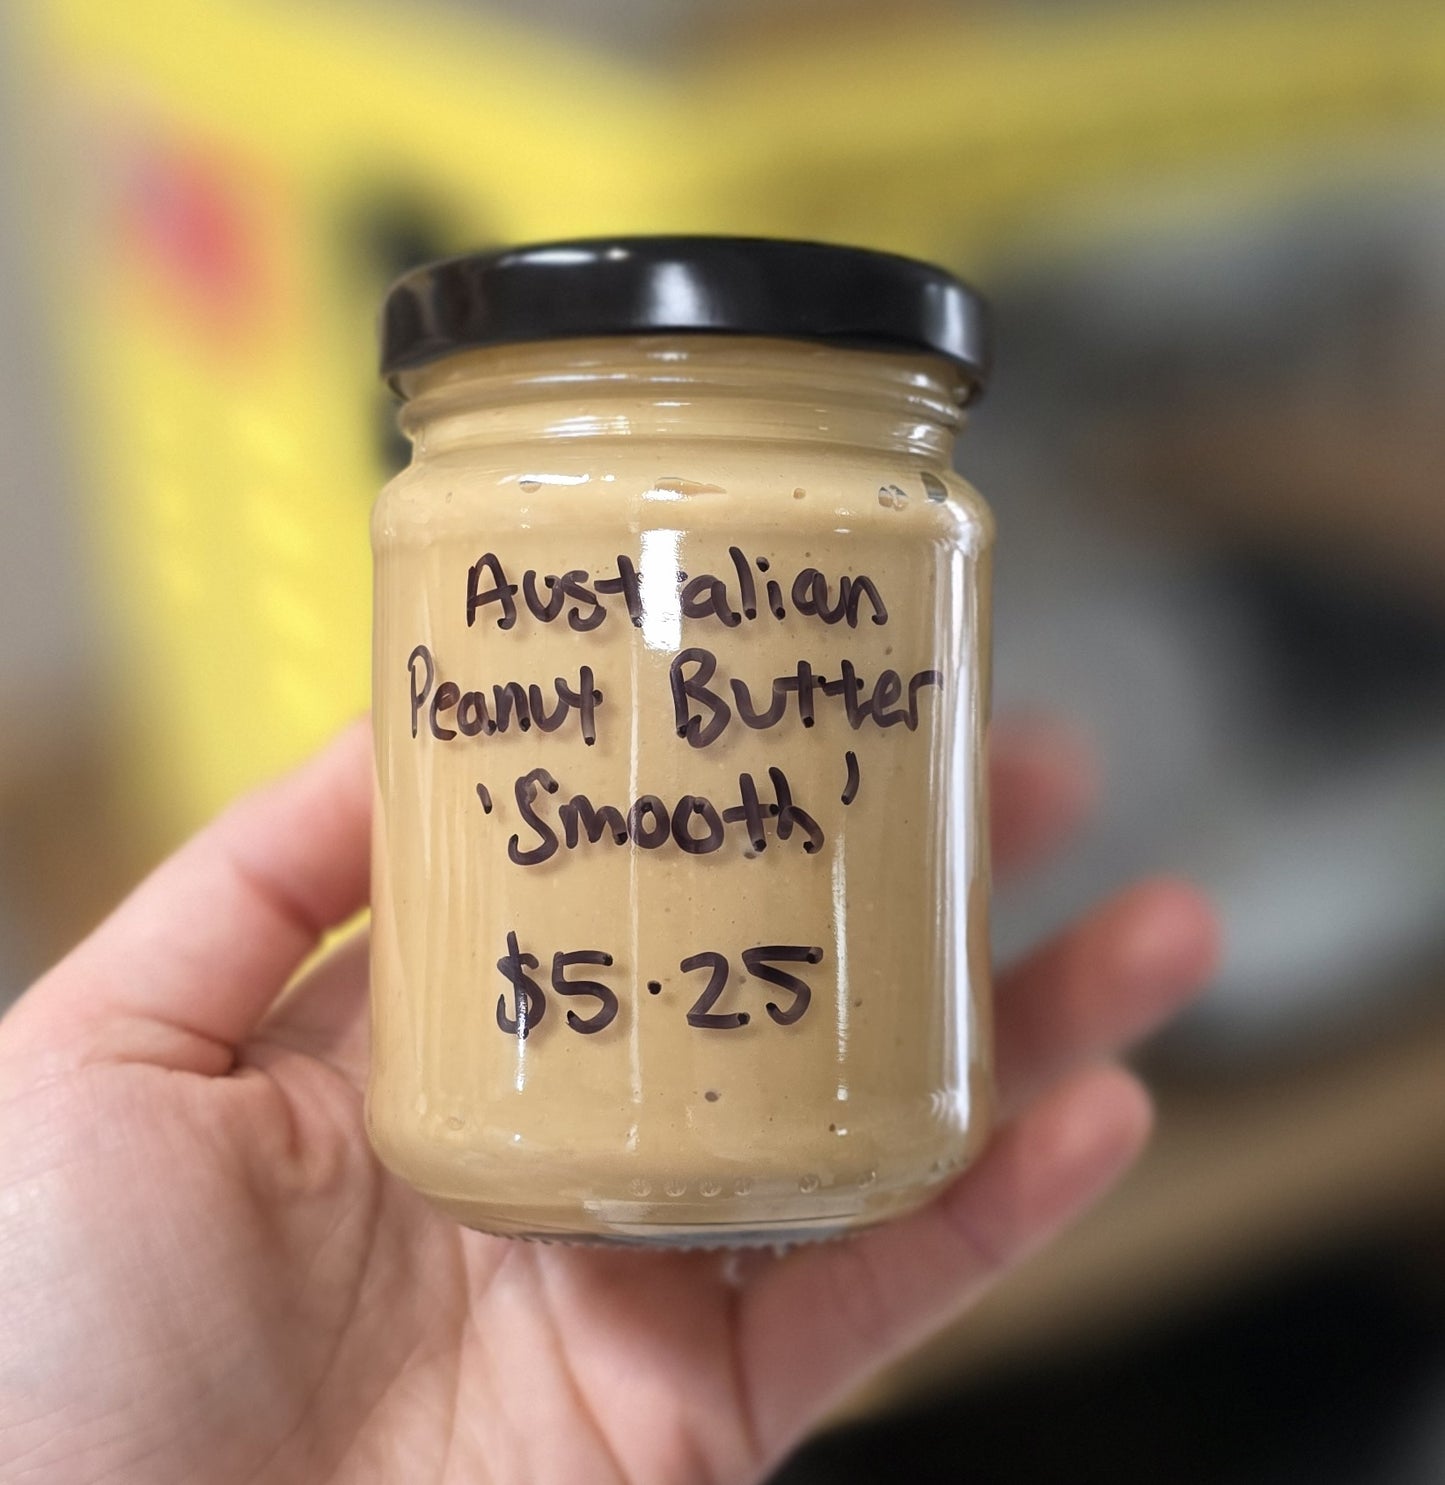 Australian
Peanut Butter
'Smooth'
$5.25